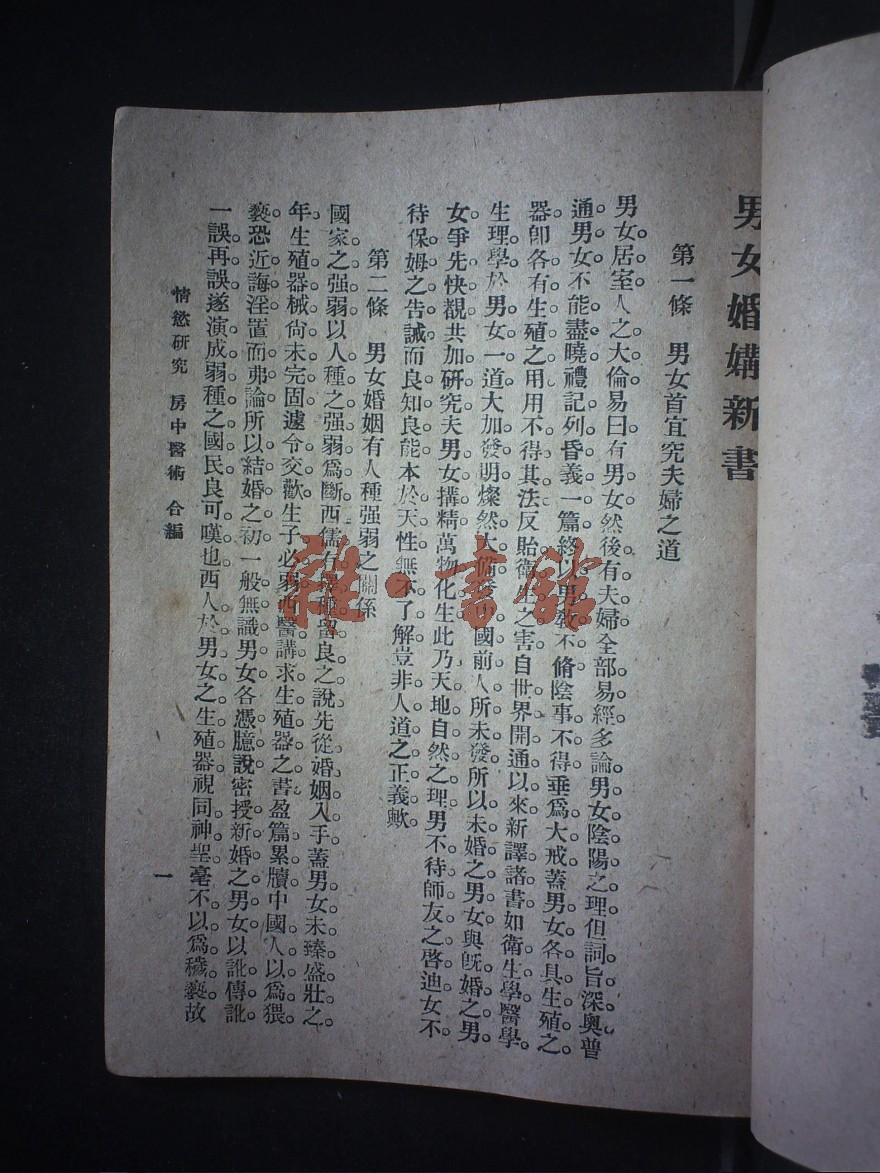 男女婚媾新書
第一條　男女首宜究夫婦之道
男女居室。人之大倫。易曰有男女然後有夫婦。全部易經。多論男女陰陽之理。但詞旨深奧。普
通男女不能盡曉。禮記列昏義一篇。終以男敎不脩。陰事不得。垂爲大戒。蓋男女各具生殖之
器。卽各有生殖之用。用不得其法。反貽衛生之害。自世界開通以來。新譯諸書。如衛生學。醫學。
生理學。於男女一道。大加發明。燦然大備。爲中國前人所未發。所以未婚之男女與旣婚之男
女。爭先快覩。共加硏究。夫男女搆精。萬物化生。此乃天地自然之理。男不待師友之啓迪。女不
待保姆之告誡。而良知良能。本於天性。無不了解。豈非人道之正義歟
第二條　男女婚姻有人種强弱之關係
國家之强弱。以人種之强弱爲斷。西儒有擇種留良之說。先從婚姻入手。蓋男女未臻盛壯之
年。生殖器械尙未完固。遽令交歡。生子必弱。西醫講求生殖器之書。盈篇累牘。中國人以爲猥
褻。恐近誨淫。置而弗論。所以結婚之初。一般無識男女。各憑臆說。密授新婚之男女。以訛傳訛。
一誤再誤。遂演成弱種之國民。良可嘆也。西人於男女之生殖器。視同神聖。毫不以爲穢褻。故
情慾硏究　房中醫術　合編
一
雜·書館